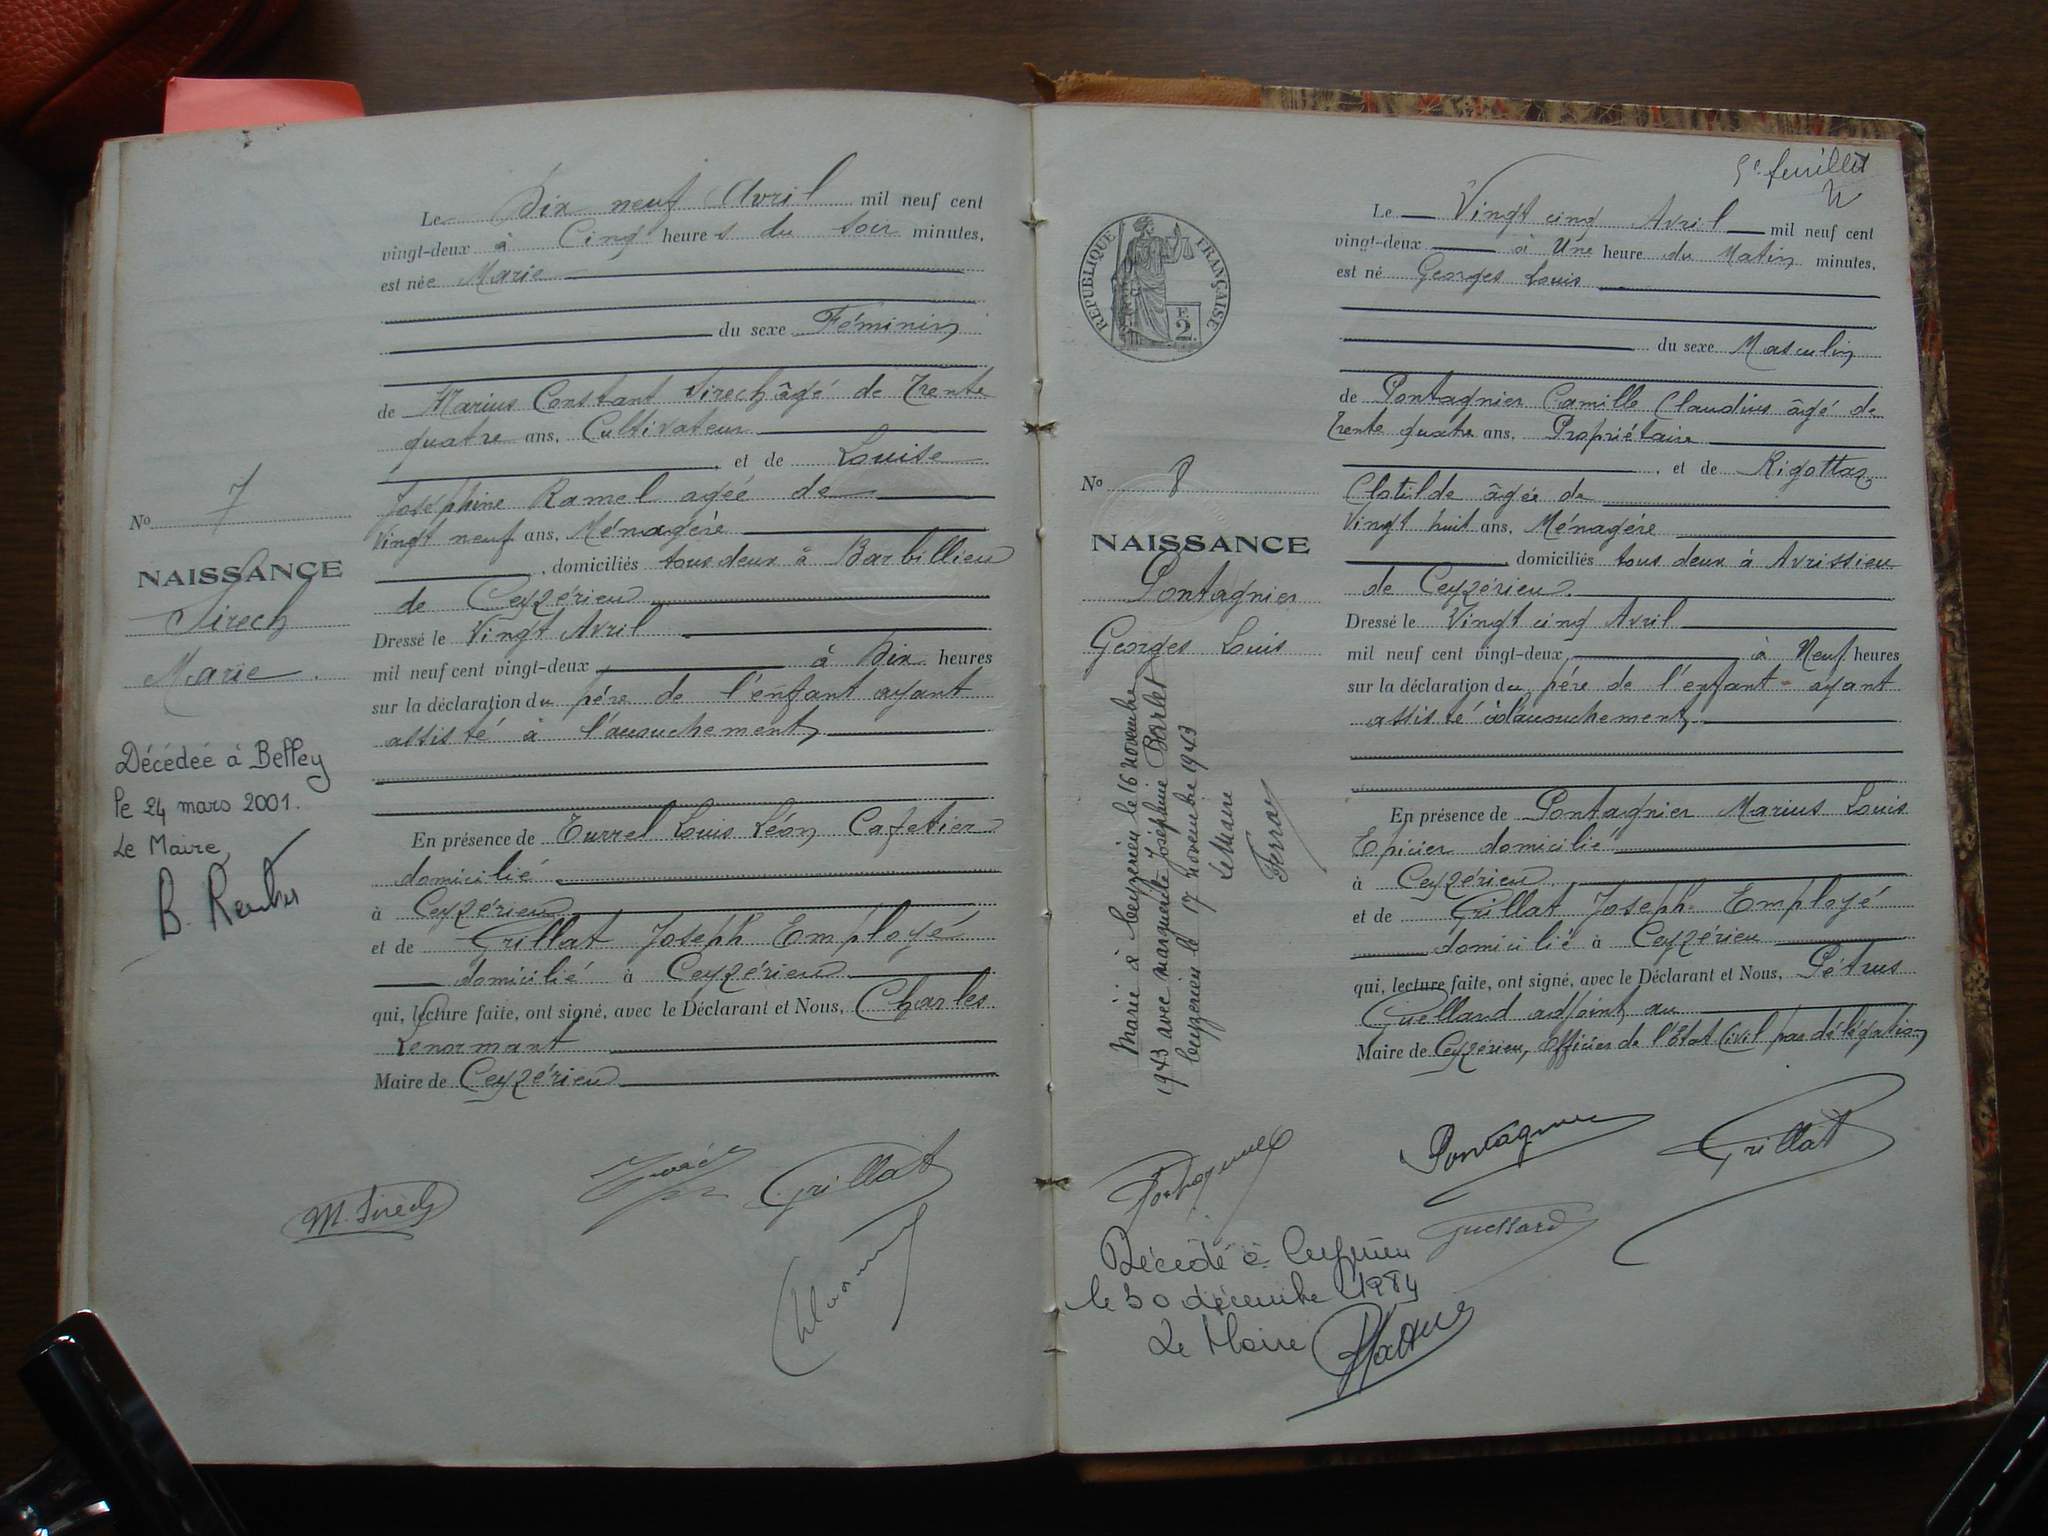 Le Dix neuf Avril mil neuf cent
vingt-deux à Cinq heures du soir minutes,
est née Marie
du sexe Féminin
de Marius Constant Sirech âgé de Trente
quatre ans, Cultivateur
, et de Louise
Joséphine Ramel agée de
Vingt neuf ans, Ménagére
, domiciliés tous deux à Barbillieu
de Ceyzérieu
Dressé le Vingt Avril
mil neuf cent vingt-deux à Dix heures
sur la déclaration du pére de l'enfant ayant
assisté à l'accouchement
En présence de Turrel Louis Léon Cafetier
domicilié
à Ceyzérieu
et de Grillat Joseph Employé
domicilié à Ceyzérieu
qui, lecture faite, ont signé, avec le Déclarant et Nous, Charles
Lenormant
Maire de Ceyzérieu
No 7
NAISSANCE
Sirech
Marie
Décédée à Belley
le 24 mars 2001.
Le Maire
M. Sirech
Grillat
5e feuillet
REPUBLIQUE FRANÇAISE
F.
2
Le Vingt cinq Avril mil neuf cent
vingt-deux à Une heure du Matin minutes,
est né Georges Louis
du sexe Masculin
de Pontagnier Camille Claudius âgé de
Trente quatre ans, Propriétaire
, et de Rigottaz
Clotilde âgée de
Vingt huit ans, Ménagére
, domiciliés tous deux à Avrissieu
de Ceyzérieu
Dressé le Vingt cinq Avril
mil neuf cent vingt-deux, à Neuf heures
sur la déclaration du pére de l'enfant ayant
assisté à l'accouchement
En présence de Pontagnier Marius Louis
Epicier domicilié
à Ceyzérieu
et de Grillat Joseph Employé
domicilié à Ceyzérieu
qui, lecture faite, ont signé, avec le Déclarant et Nous, Pétrus
Guelland adjoint au
Maire de Ceyzérieu, Officier de l'Etat Civil par délégation
No 8
NAISSANCE
Pontagnier
Georges Louis
Marié à Ceyzerieu le 16 novembre
1943 avec Marguerite Joséphine Barlet
Ceyzerieu le 17 novembre 1943
Le Maire
Pontagnier
Grillat
Décédé à Ceyzerieu
le 30 décembre 1984
Le Maire